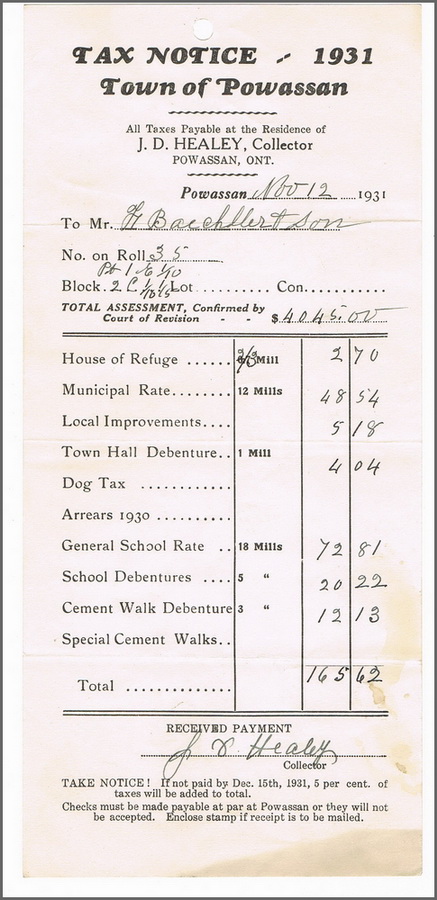 TAX NOTICE - 1931
Town of Powassan
All Taxes Payable at the Residence of
J. D. HEALEY, Collector
POWASSAN, ONT.
Powassan Nov 12 1931
To Mr. H Baechtler & Son
No. on Roll 35
Pt 1
Block 2 Lot .......... Con...........
TOTAL ASSESSMENT, Confirmed by
Court of Revision - - $4045.00
House of Refuge ...... 2/3 Mill 2 70
Municipal Rate........ 12 Mills 48 54
Local Improvements.... 5 18
Town Hall Debenture.. 1 Mill 4 04
Dog Tax ............
Arrears 1930 ..........
General School Rate .. 18 Mills 72 81
School Debentures .... 5 " 20 22
Cement Walk Debenture 3 " 12 13
Special Cement Walks..
Total .............. 165 62
RECEIVED PAYMENT
J D Healey
Collector
TAKE NOTICE! If not paid by Dec. 15th, 1931, 5 per cent. of
taxes will be added to total.
Checks must be made payable at par at Powassan or they will not
be accepted. Enclose stamp if receipt is to be mailed.